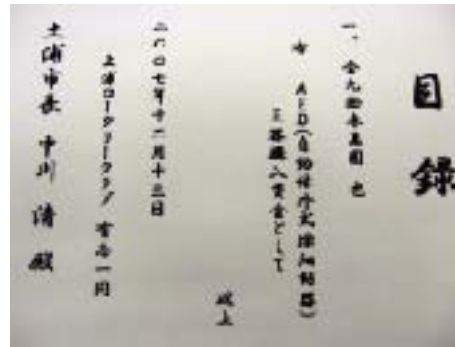 目録
一、金九拾壱萬圓 也
但 AED(自動体外式除細動器)
三器購入資金として
以上
二〇〇七年十二月十三日
土浦ロータリークラブ 有志一同
土浦市長 中川 清 殿